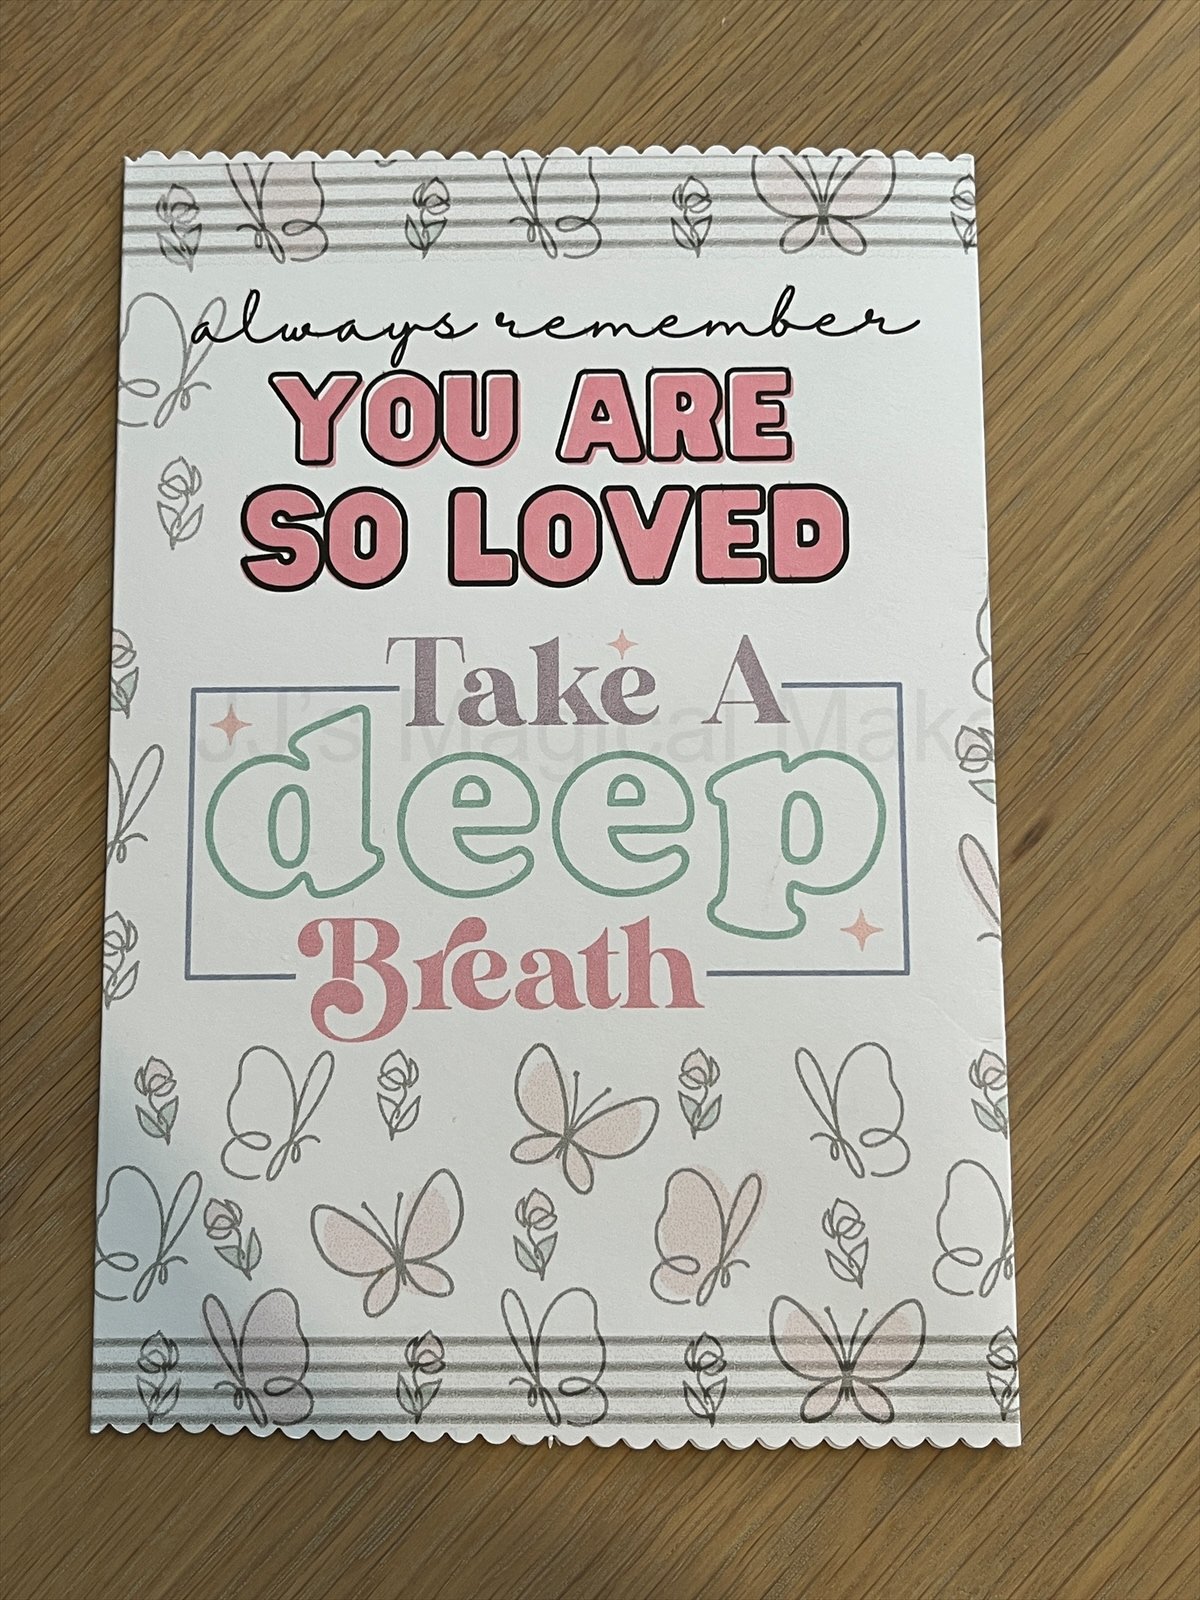 always remember
YOU ARE
SO LOVED
Take A
JJ's Magical Make
deep
Breath